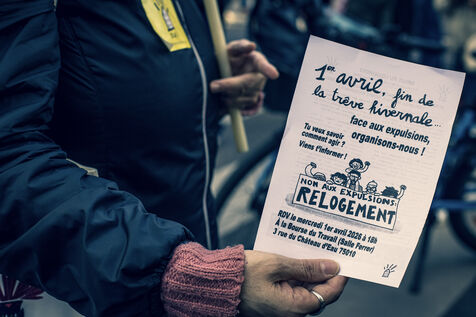 1er avril, fin de
la trêve hivernale...
face aux expulsions,
organisons-nous !
Tu veux savoir
comment agir ?
Viens t'informer !
NON AUX EXPULSIONS
RELOGEMENT
RDV le mercredi 1er avril 2026 à 18h
À la Bourse du Travail (Salle Ferrer)
3 rue du Château d'Eau 75010